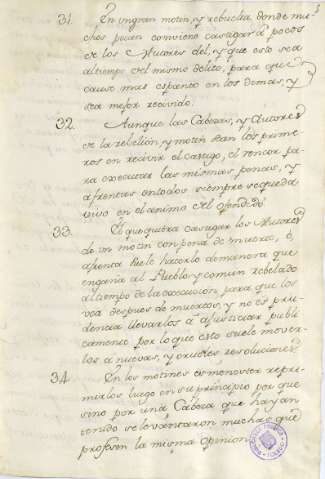 31. En un gran motin, y rebuelta donde mu-
chos pecan conviene castigar a pocos
de los Autores del, y que esto sea
al tiempo del mismo delito, para que
cause mas espanto en los demas, y
sea mejor recivido.
32. Aunque las Cabezas, y Autores
de la rebelion, y motin sean los prime
ros en recivir el castigo, el rencor pa
ra executar las mismas penas, y
afrentas en todos siempre se queda
vivo en el animo del ofendido.
33. El que quiera castigar los Autores
de un motin con pena de muerte, ò,
afrenta suele hacerlo de manera que
engaña al Pueblo y comun rebelado
al tiempo de la execucion, para que los
vea despues de muertos, y no es pru-
dencia llevarlos a ajusticiar publi
camente por lo que esto suele mover-
los a nuevas, y crueles resoluciones
34. En los motines es menester repri-
mirlos luego en su principio por que
sino por una Cabeza que hayan
tenido se levantaron muchas que
profesen la misma opinion